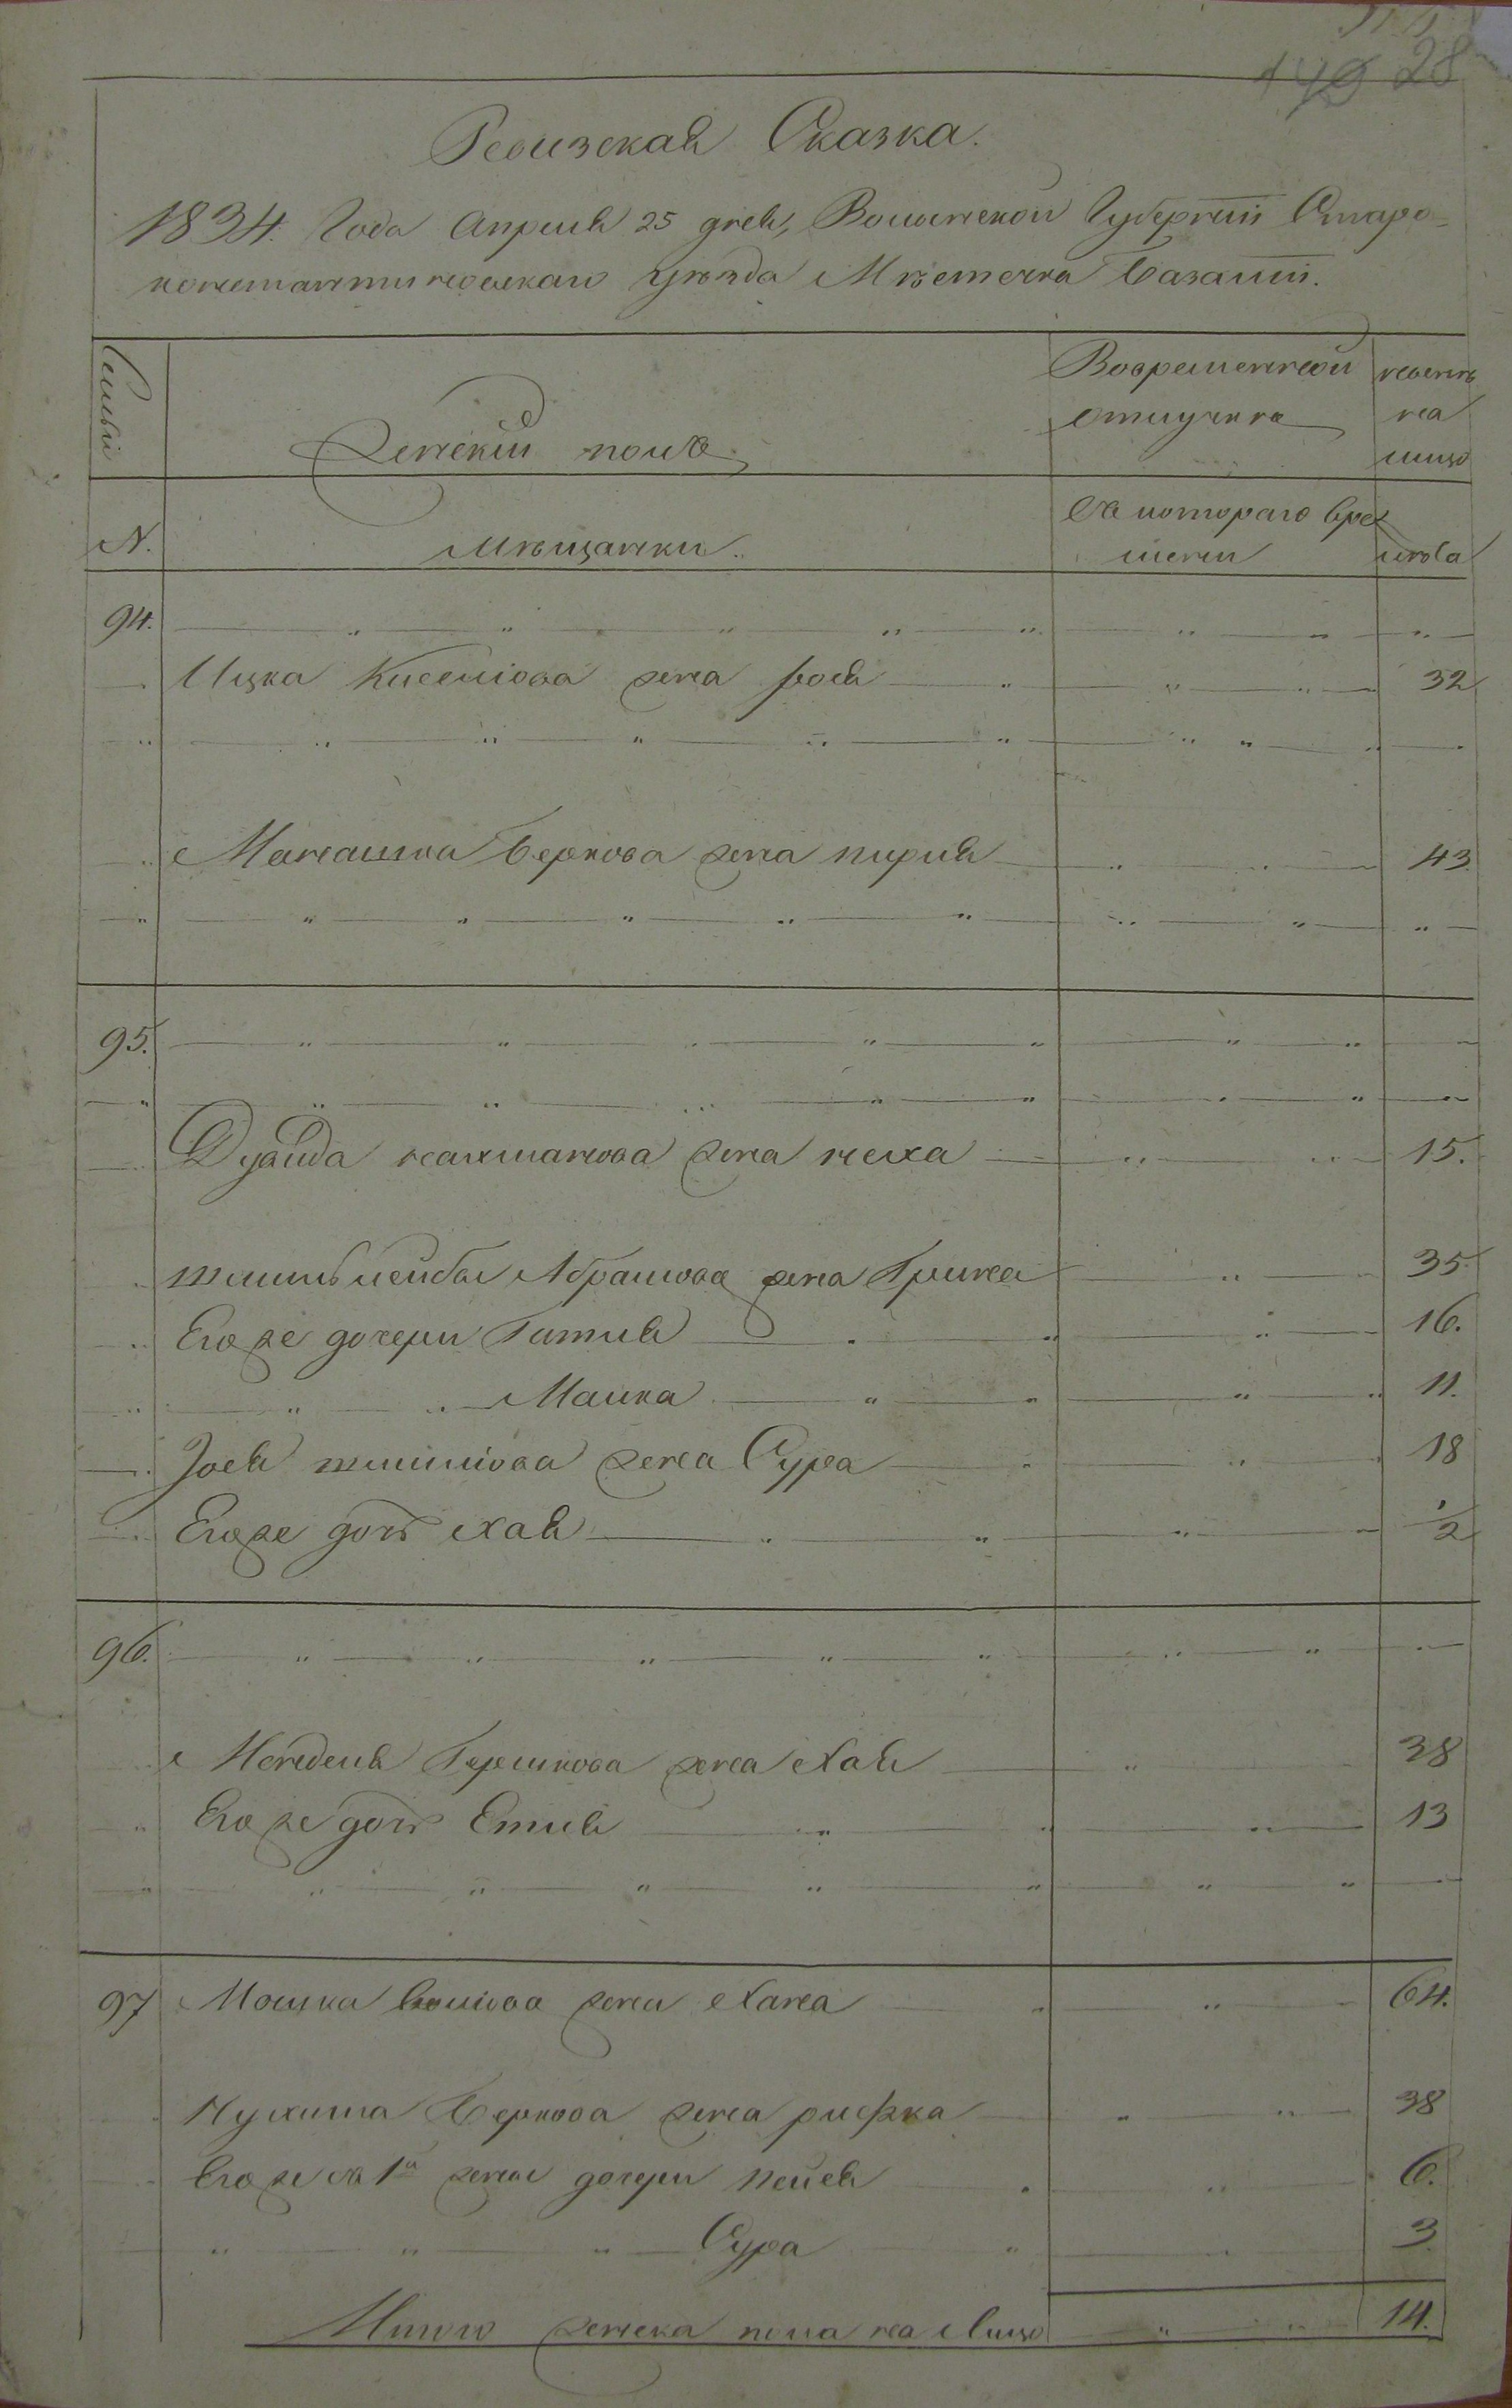 28
Ревизская Сказка.
1834. Года Апреля 25 дня, Волынской Губернии Старо-
константиновскаго уѣзда Мѣстечка Базалии.
Семьи
Женский полъ
Вовременной отлучкѣ
нынѣ на лицо
N.
Мѣщанки
Съ котораго времени
лѣта
94.
Ицка Киселiова жена Бося 32
Манашка Беркова жена Пирля 43
95.
Дувида Нахманова жена Неха 15.
Абрамова жена
Его же дочери Гитля 16.
Малка 11.
Iося жена Сура 18
Его же дочь Хая 1/2
96.
Менделя Гершкова жена Хая 38
Его же дочь Етля 13
97 Мошка жена Хана 64.
Нухима Беркова жена Рифка 38
Его же съ 1й жены дочери Пейся 6.
Сура 3
Итого женска пола на лицо 14.